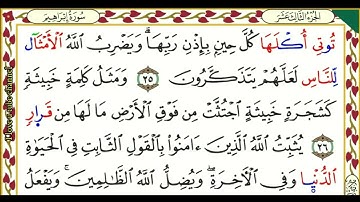 الجزء الثالث عشر سورة إبراهيم
تُؤْتِىٓ أُكُلَهَا كُلَّ حِينٍۭ بِإِذْنِ رَبِّهَا ۗ وَيَضْرِبُ ٱللَّهُ ٱلْأَمْثَالَ
لِلنَّاسِ لَعَلَّهُمْ يَتَذَكَّرُونَ ٢٥ وَمَثَلُ كَلِمَةٍ خَبِيثَةٍ
كَشَجَرَةٍ خَبِيثَةٍ ٱجْتُثَّتْ مِن فَوْقِ ٱلْأَرْضِ مَا لَهَا مِن قَرَارٍ
٢٦ يُثَبِّتُ ٱللَّهُ ٱلَّذِينَ ءَامَنُوا۟ بِٱلْقَوْلِ ٱلثَّابِتِ فِى ٱلْحَيَوٰةِ
ٱلدُّنْيَا وَفِى ٱلْـَٔاخِرَةِ ۖ وَيُضِلُّ ٱللَّهُ ٱلظَّـٰلِمِينَ ۚ وَيَفْعَلُ